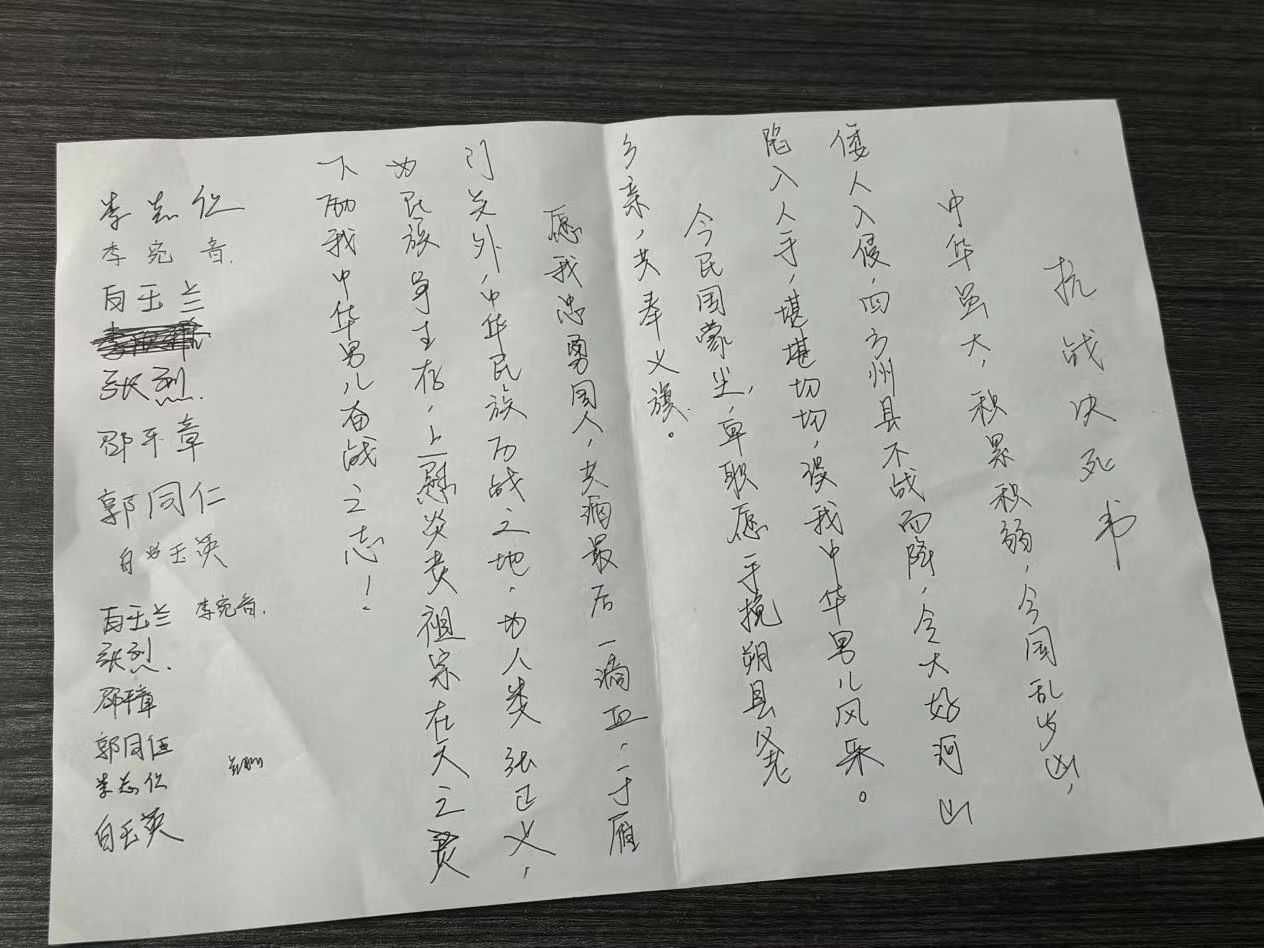 抗战决死书
中华虽大，积累积弱，今国乱岁凶，
倭人入侵，四方州县不战而降，令大好河山
陷入人手，堪堪切切，误我中华男儿风采。
今民国蒙尘，卑职愿手挽朔县父老
乡亲，共奉义旗。
愿我忠勇国人，共洒最后一滴血，于雁
门关外，中华民族历战之地，为人类张正义，
为民族争生存，上慰炎黄祖宗在天之灵
下励我中华男儿奋战之志！
李志仁
李宛音.
白玉兰
张烈.
邵平章
郭同仁
白玉英
白玉兰 李宛音.
张烈.
邵平章
郭同伍
李志仁
白玉英